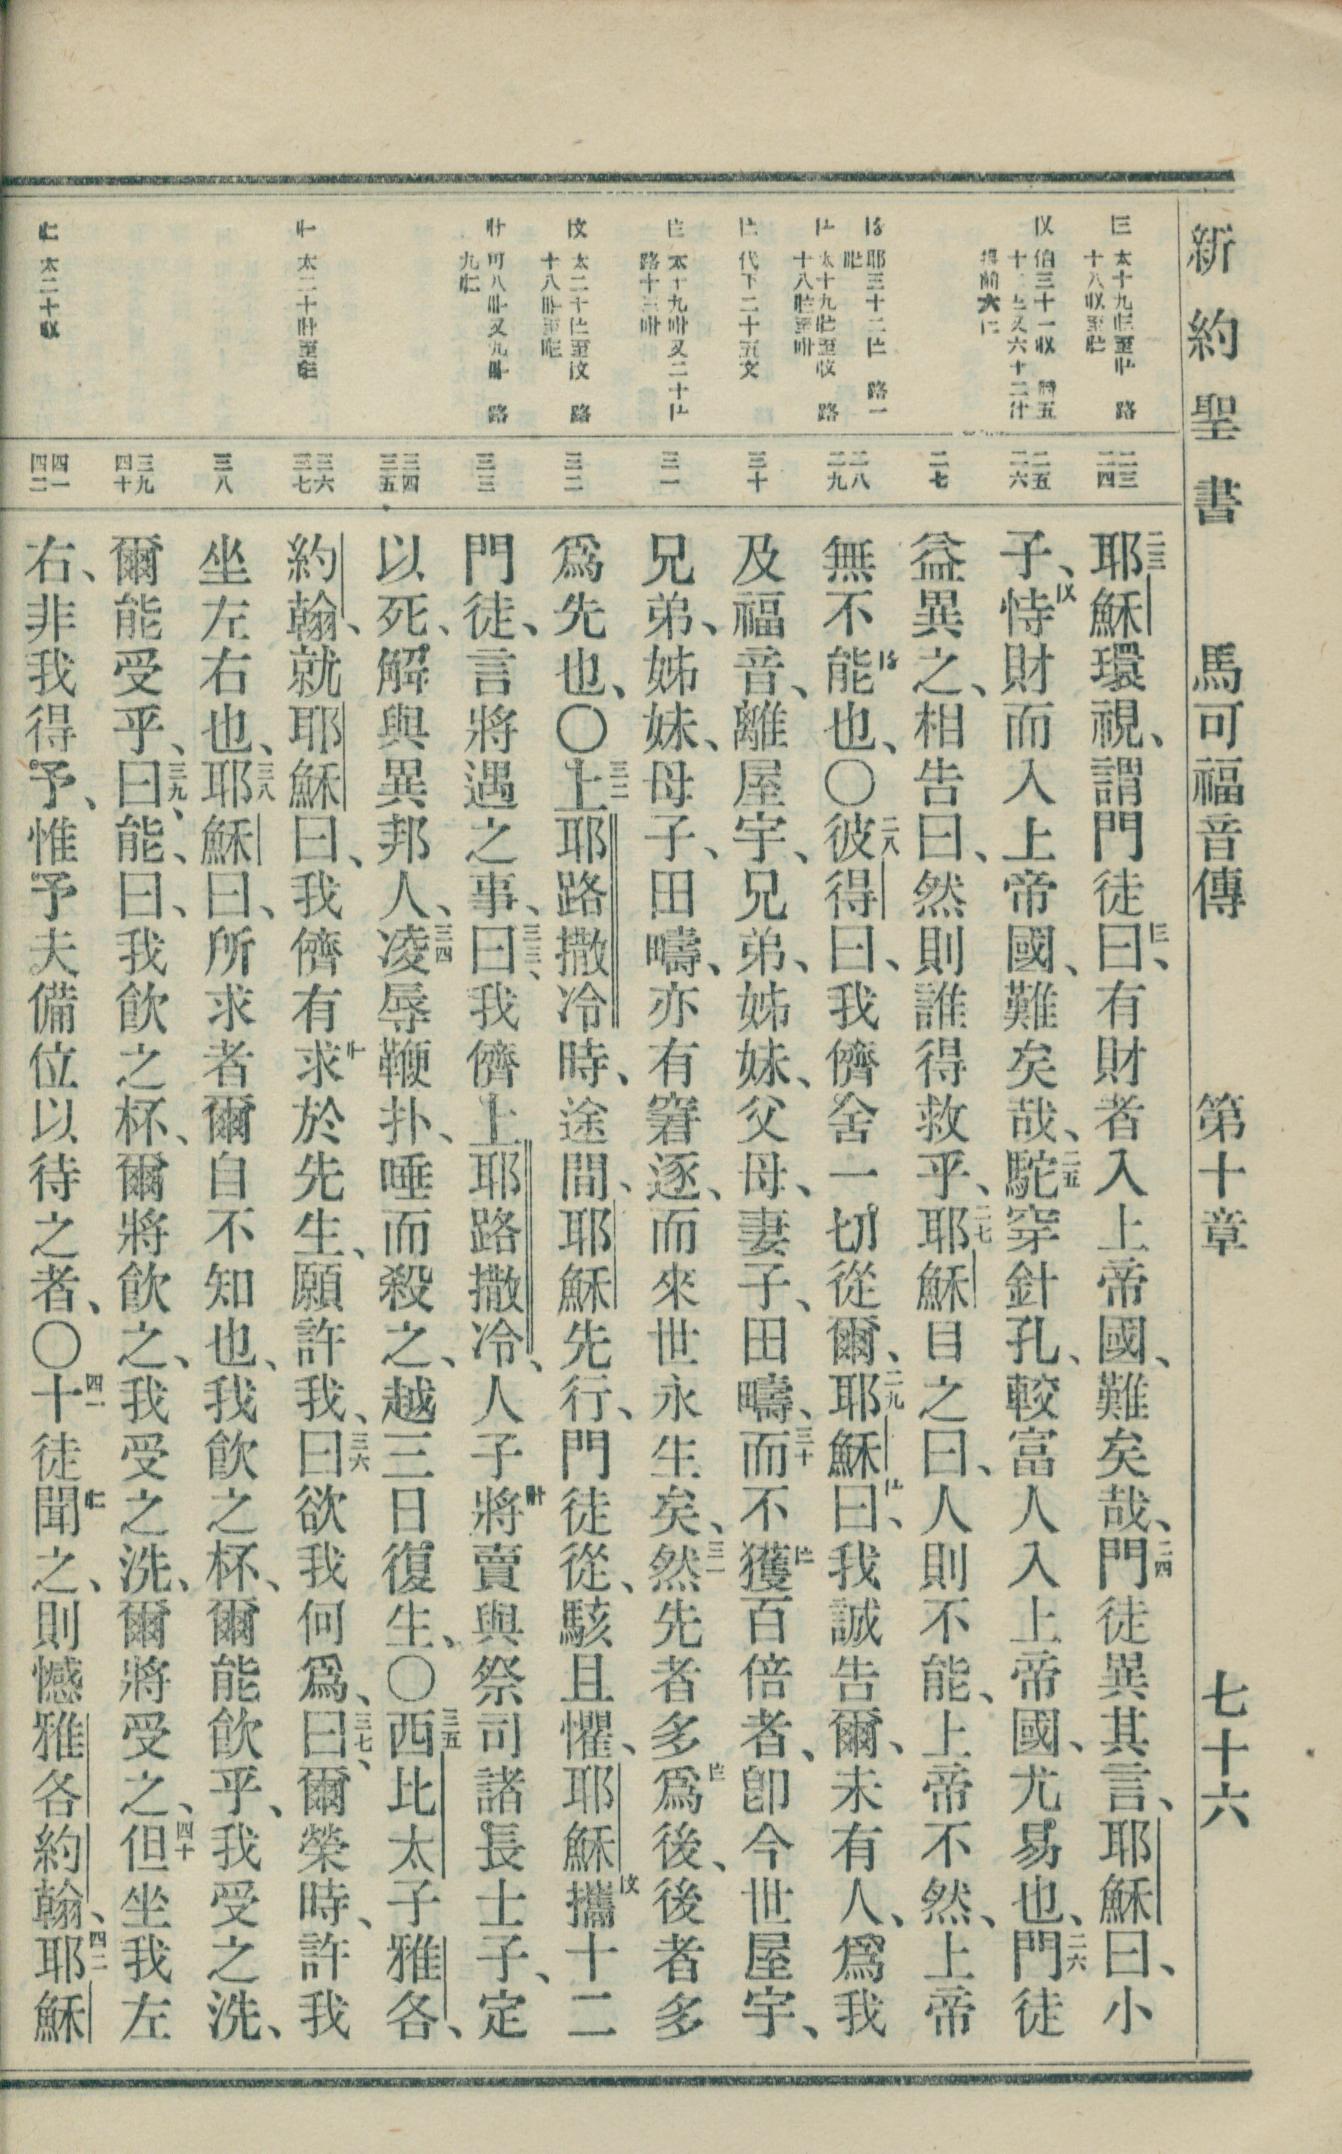 新約聖書 馬可福音傳 第十章 七十六
二三 二四
二五 二六
二七
二八 二九
三十
三一
三二
三三
三四 三五
三六 三七
三八
三九 四十
四一 四二
二三耶穌環視、謂門徒曰、有財者入上帝國、難矣哉、二四門徒異其言、耶穌曰、小
子、恃財而入上帝國、難矣哉、二五駝穿針孔、較富人入上帝國、尤易也、二六門徒
益異之、相告曰、然則誰得救乎、二七耶穌目之曰、人則不能、上帝不然、上帝
無不能也、〇二八彼得曰、我儕舍一切從爾、二九耶穌曰、我誠告爾、未有人、爲我
及福音、離屋宇、兄弟、姊妹、父母、妻子、田疇、三十而不獲百倍者、卽今世屋宇、
兄弟、姊妹、母子、田疇、亦有窘逐、而來世永生矣、三一然先者多爲後、後者多
爲先也、〇三二上耶路撒冷時、途間、耶穌先行、門徒從、駭且懼、耶穌攜十二
門徒、言將遇之事、三三曰、我儕上耶路撒冷、人子將賣與祭司諸長士子、定
以死、解與異邦人、三四凌辱鞭扑、唾而殺之、越三日復生、〇三五西比太子雅各、
約翰、就耶穌曰、我儕有求於先生、願許我、三六曰、欲我何爲、三七曰、爾榮時、許我
坐左右也、三八耶穌曰、所求者爾自不知也、我飲之杯、爾能飲乎、我受之洗、
爾能受乎、三九曰、能、曰、我飲之杯、爾將飲之、我受之洗、爾將受之、四十但坐我左
右、非我得予、惟予夫備位以待之者、〇四一十徒聞之、則憾雅各約翰、四二耶穌